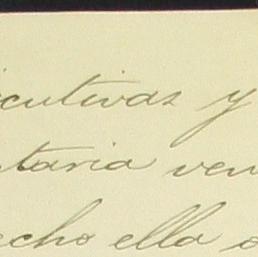 cutivas y
taria ven
echo ella